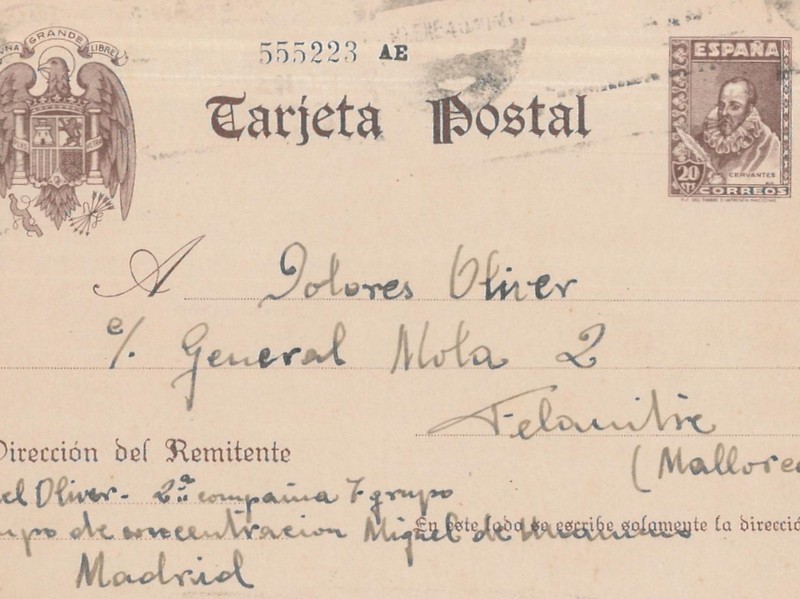 UNA GRANDE LIBRE
555223 AE
ESPAÑA
Tarjeta Postal
20
CERVANTES
CORREOS
A Dolores Oliver
c/. General Mola 2
Felanitx
(Mallorca
Dirección del Remitente
el Oliver - 2ª compañia 7 grupo
En este lado se escribe solamente la direcció
po de concentracion Miguel de Unamuno
Madrid